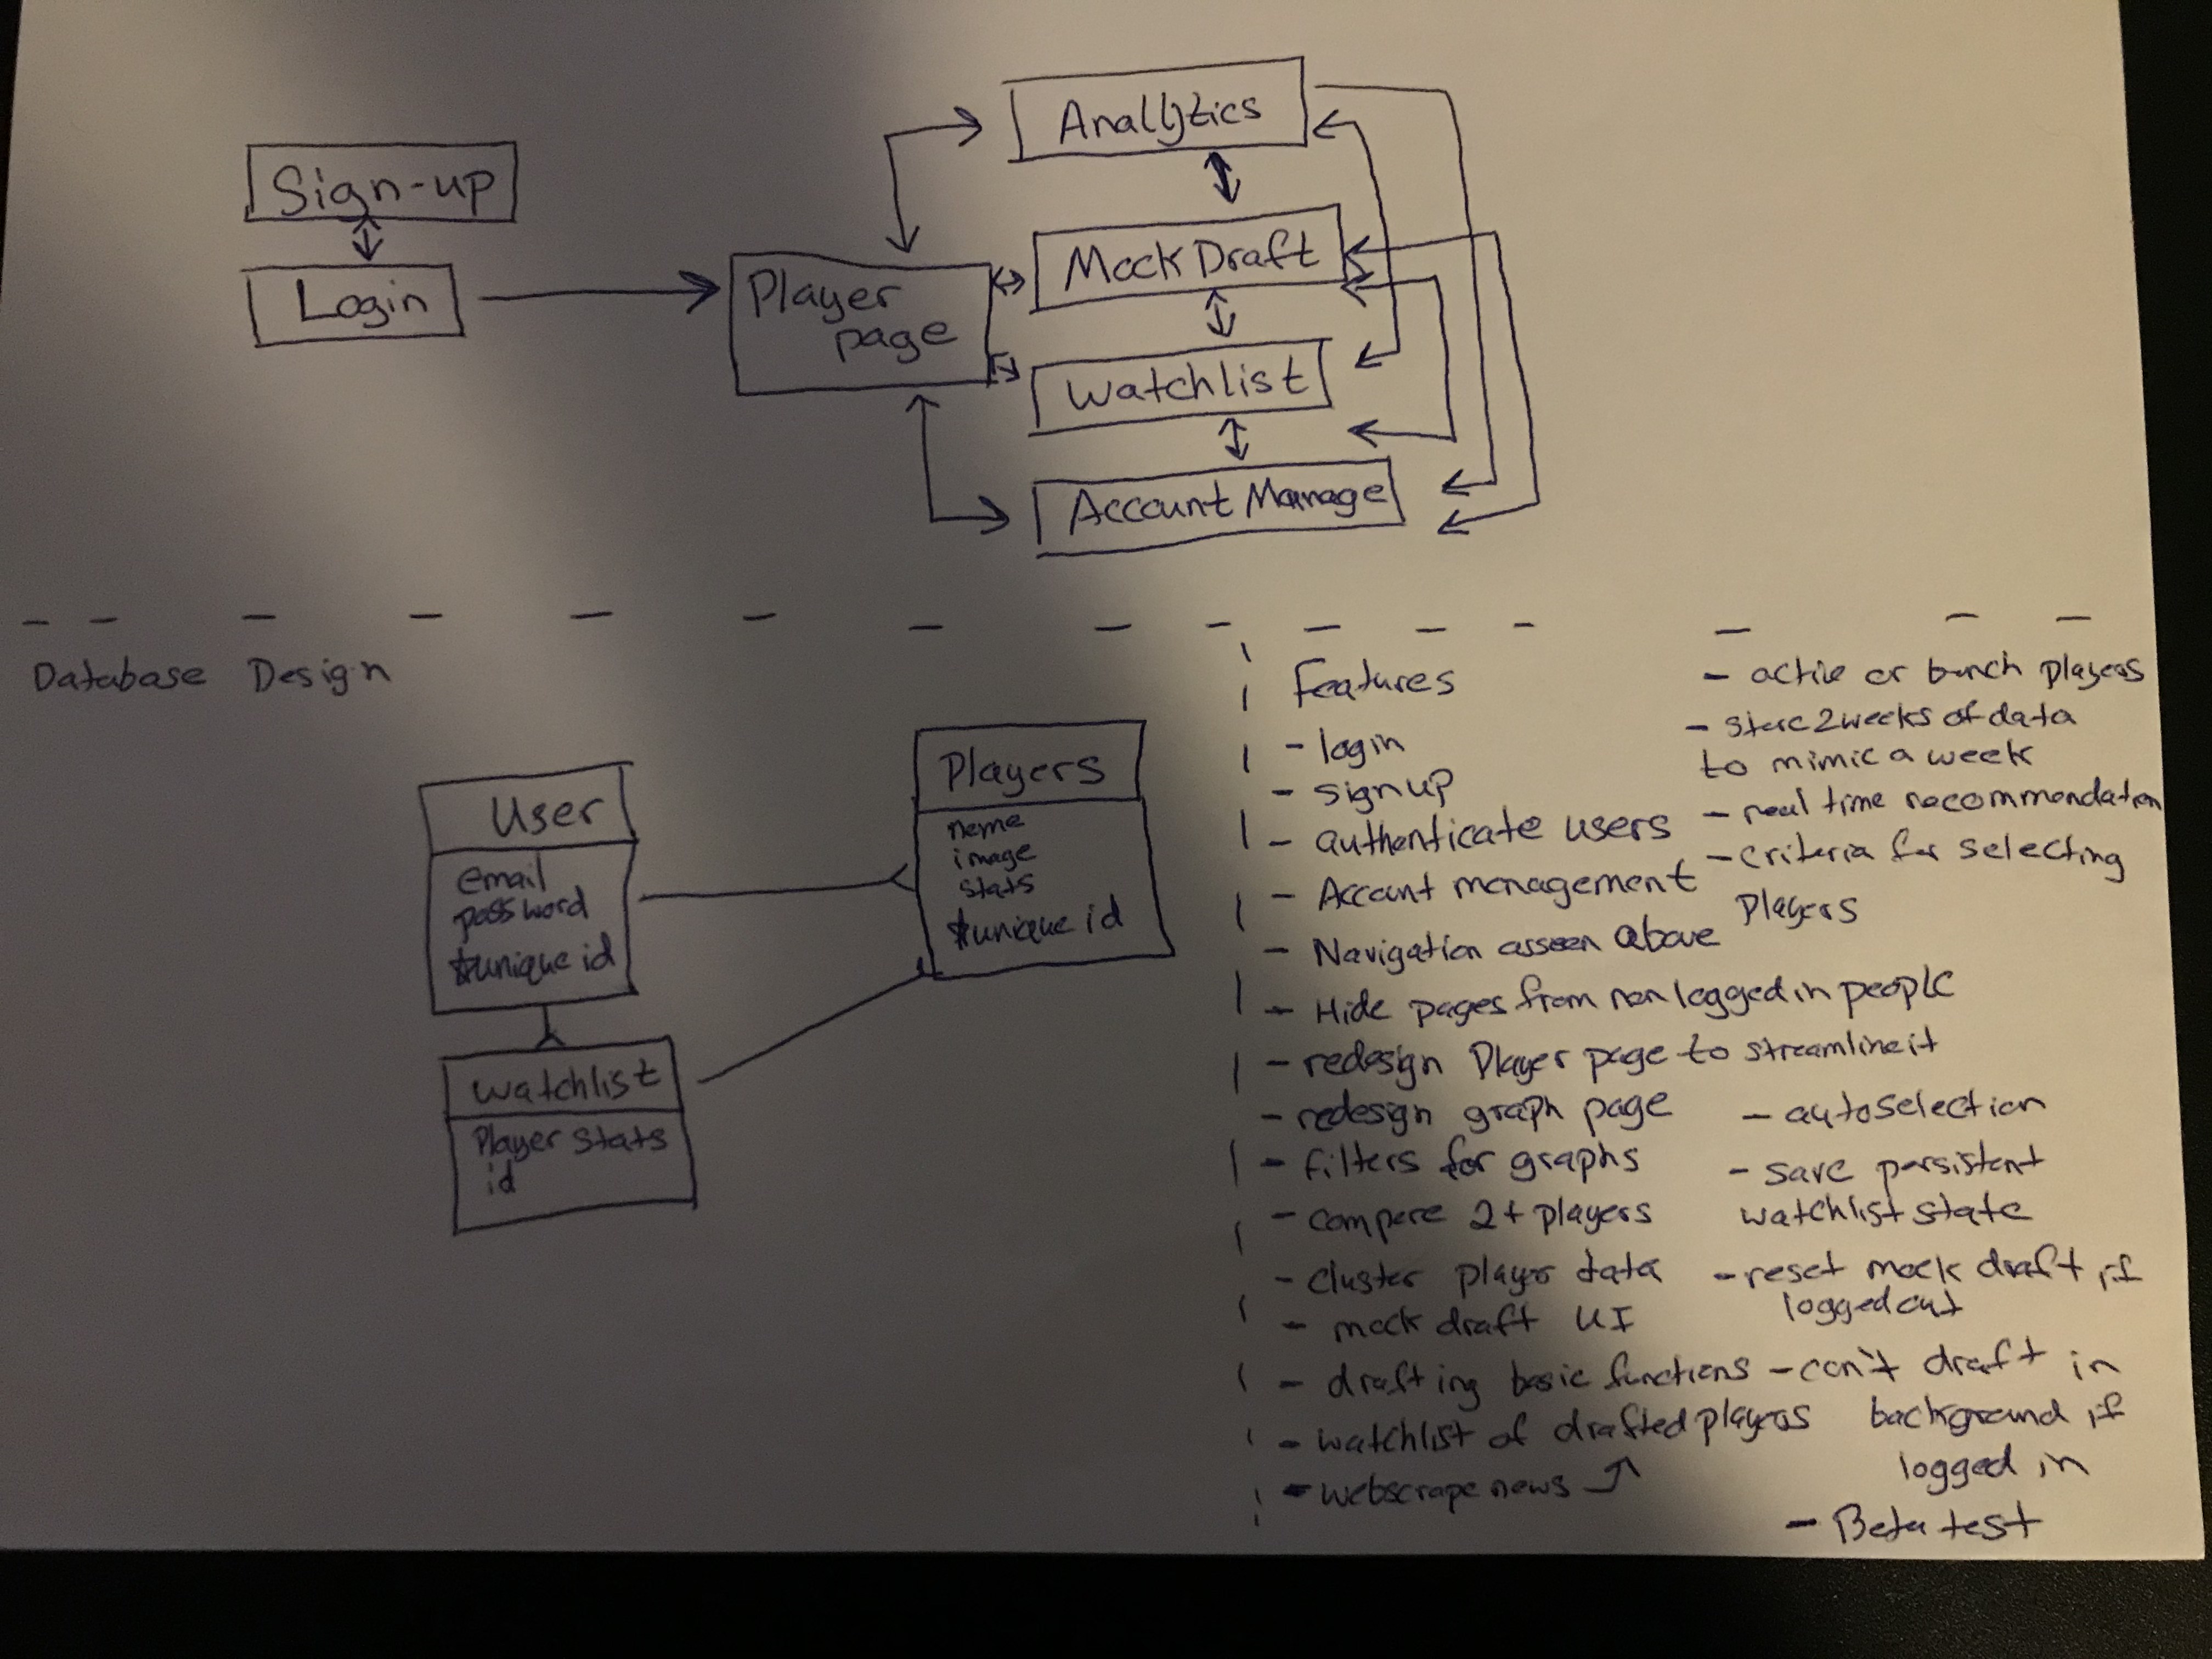 Sign-up
Login
Player
page
Analytics
Mock Draft
watchlist
Account Manage
Database Design
User
email
password
unique id
watchlist
Player stats
id
Players
name
image
stats
unique id
features
- login
- signup
- authenticate users
- Account management
- Navigation as seen above
- Hide pages from non logged in people
- redesign Player page to streamline it
- redesign graph page
- filters for graphs
- compare 2+ players
- cluster player data
- mock draft UI
- drafting basic functions
- watchlist of drafted players
- webscrape news
- active or bench players
- store 2 weeks of data
to mimic a week
- real time recommendation
- criteria for selecting
players
- autoselection
- save persistent
watchlist state
- reset mock draft if
logged out
- can't draft in
background if
logged in
- Beta test